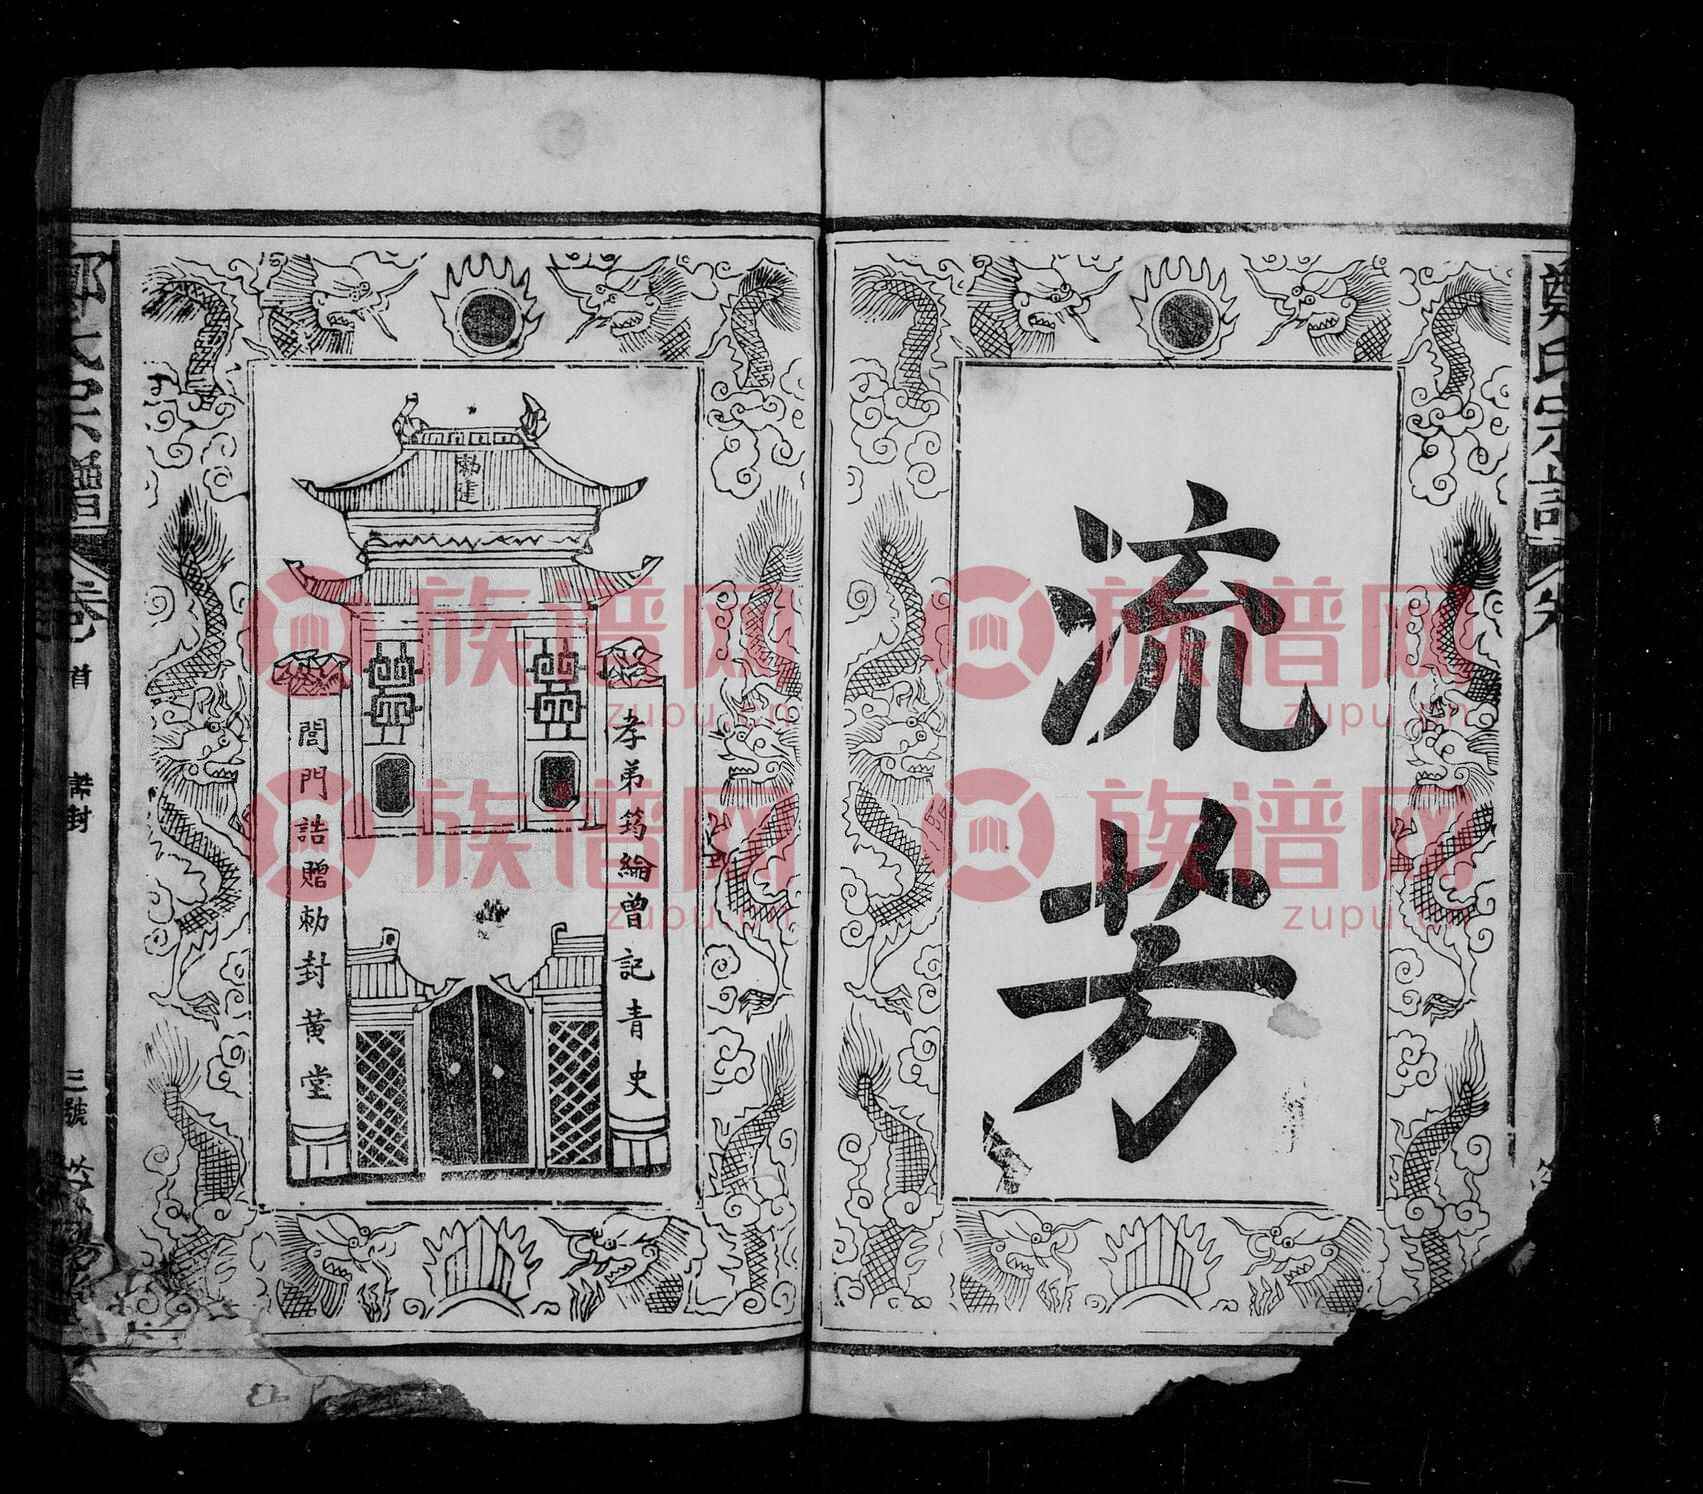 鄭氏宗譜
流芳
勅建
孝弟笃綸曾記青史
閭門誥贈勅封黄堂
宗譜
卷首
誥封
三號
族谱网
zupu.cn
族谱网
zupu.cn
族谱网
zupu.cn
族谱网
zupu.cn